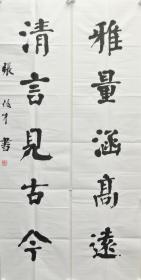 雅量涵高遠
清言見古今
張俊才書